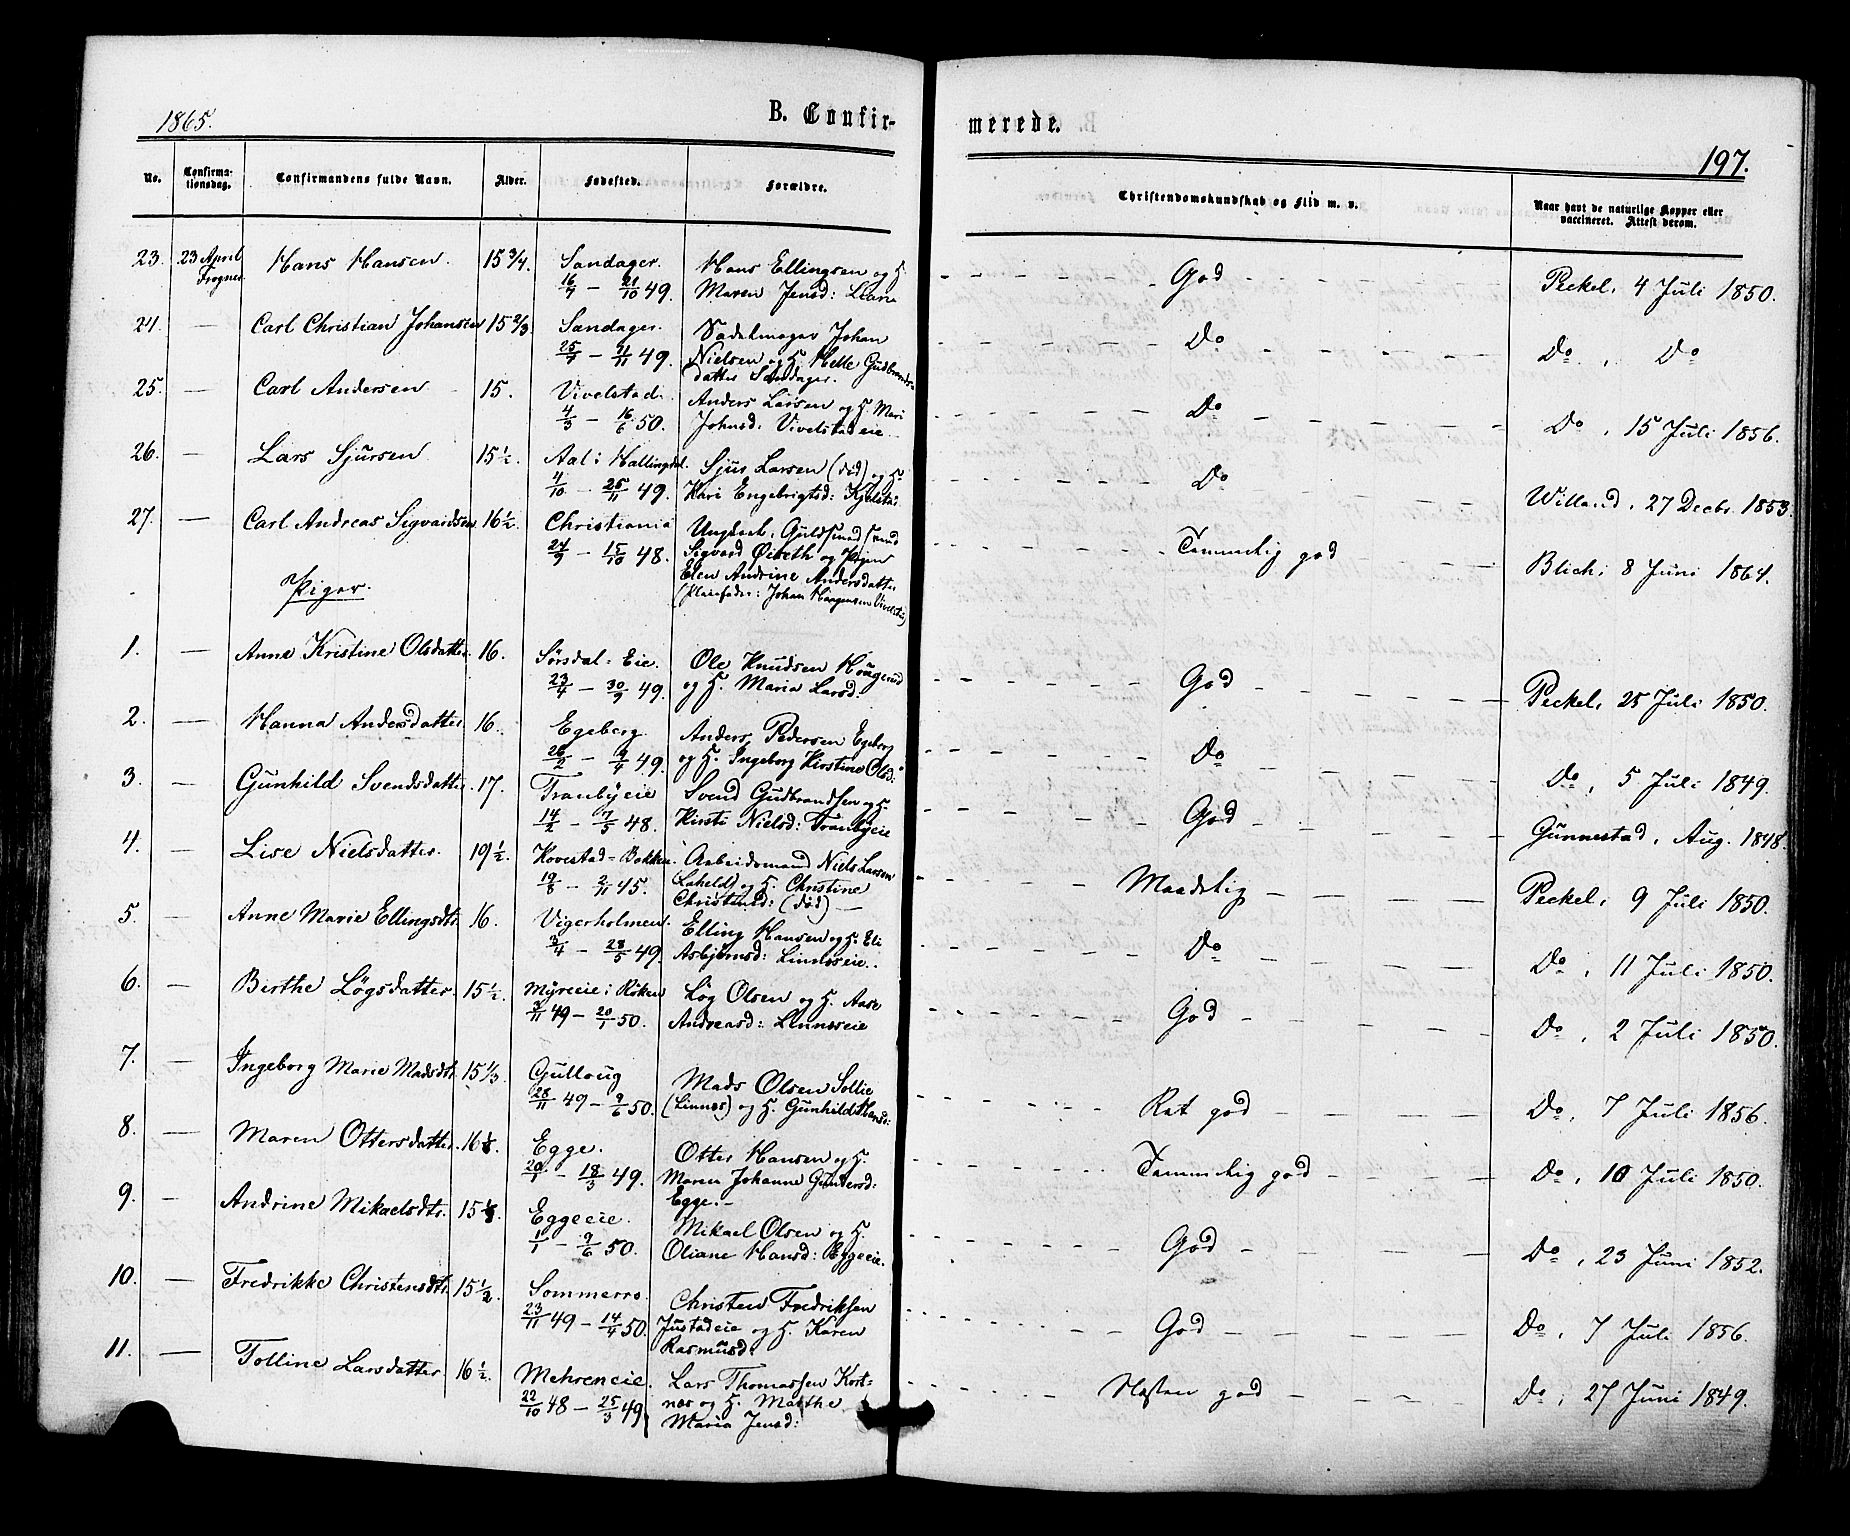 1865.
B. Confir-
merede.
197.
No.
Confirma-
tionsdag.
Confirmandens fulde Navn.
Alder.
Fødested.
Forældre.
Christendomskundskab og Flid m. v.
Naar havt de naturlige Kopper eller
vaccineret. Attest derom.
23. 23 April Hans Hansen. 15 3/4. Sandager. Hans Ellingsen og H.
Frogner 16/7 – 21/10 49. Maren Jensd: God Peckel, 4 Juli 1850.
24. — Carl Christian Johansen 15 2/3. Sandager. Sadelmager Johan
25/7 – 21/11 49. Nielsen og H. Helle Gudbrands- Do Do, Do
datter Sandager.
25. — Carl Andersen 15. Vivelstad. Anders Larsen og H. Mari
4/3 – 16/6 50. Johnsd: Vivelstadeie Do Do, 15 Juli 1856.
26. — Lars Sjursen 15 1/2. Aal i Hallingdal. Sjur Larsen (død) og H.
4/10 – 25/11 49. Kari Engebrigtsd: Do Willand, 27 Decbr. 1853.
27. — Carl Andreas Sigvardsen 16 1/2. Christiania Ungkarl, Guldsmed
24/9 – 15/10 48. Sigvard og Pigen Temmelig god Blich, 8 Juni 1864.
Elen Andrine Andersdatter
Piger. (Pleiefader: Johan Haagensen
1. — Anne Kristine Olsdatter 16. Sørsdal-Eie. Ole Knudsen Haugerud
23/4 – 30/9 49. og H. Maria Larsd. God Peckel, 25 Juli 1850.
2. — Hanna Andersdatter 16. Egeberg. Anders Pedersen Egeberg
26/2 – 9/4 49. og H. Ingeborg Kirstine Olsd: Do Do, 5 Juli 1849.
3. — Gunhild Svendsdatter. 17. Tranbyeie Svend Gudbrandsen og H.
14/2 – 7/5 48. Kirsti Nielsd: Tranbyeie God Gunnestad, Aug. 1848.
4. — Lise Nielsdatter. 19 1/2. Hovestad-Bakken. Arbeidsmand Niels Larsen
19/8 – 2/11 45. og H. Christine Maadelig Peckel, 9 Juli 1850.
Christensd: (død) —
5. — Anne Marie Ellingsdtr. 16. Vigerholmen. Elling Hansen og H. Eli
3/4 – 28/5 49. Asbjørnsd: Linneseie. Do Do, 11 Juli 1850.
6. — Berthe Løgsdatter. 15 1/2. Myreeie i Røken Løg Olsen og H. Aase
3/11 49 – 20/1 50. Andreasd: Linneseie God Do, 2 Juli 1850.
7. — Ingeborg Marie Madsdtr. 15 1/3. Gulloug Mads Olsen Sollie
28/11 49 – 9/6 50. (Linnes) og H. Gunhild Hansd: Ret god Do, 7 Juli 1856.
8. — Maren Ottersdatter. 16 Egge. Otter Hansen og H.
20/1 – 18/3 49. Maren Johanne Gundersd: Temmelig god Do, 10 Juli 1850.
Egge. —
9. — Andrine Mikaelsdtr. 15 Eggeeie. Mikael Olsen og H.
1/1 – 9/6 50. Oliane Hansd: Eggeeie. God Do, 23 Juni 1852.
10. — Fredrikke Christensdtr. 15 1/2 Sommerro. Christen Fredriksen
23/11 49 – 14/4 50. Justadeie og H. Karen God Do, 7 Juli 1856.
Rasmusd.
11. — Tolline Larsdatter 16 1/2. Mehreneie. Lars Thomassen Kort-
22/10 48 – 25/3 49. næs og H. Marthe Næsten god Do, 27 Juni 1849.
Maria Jensd: